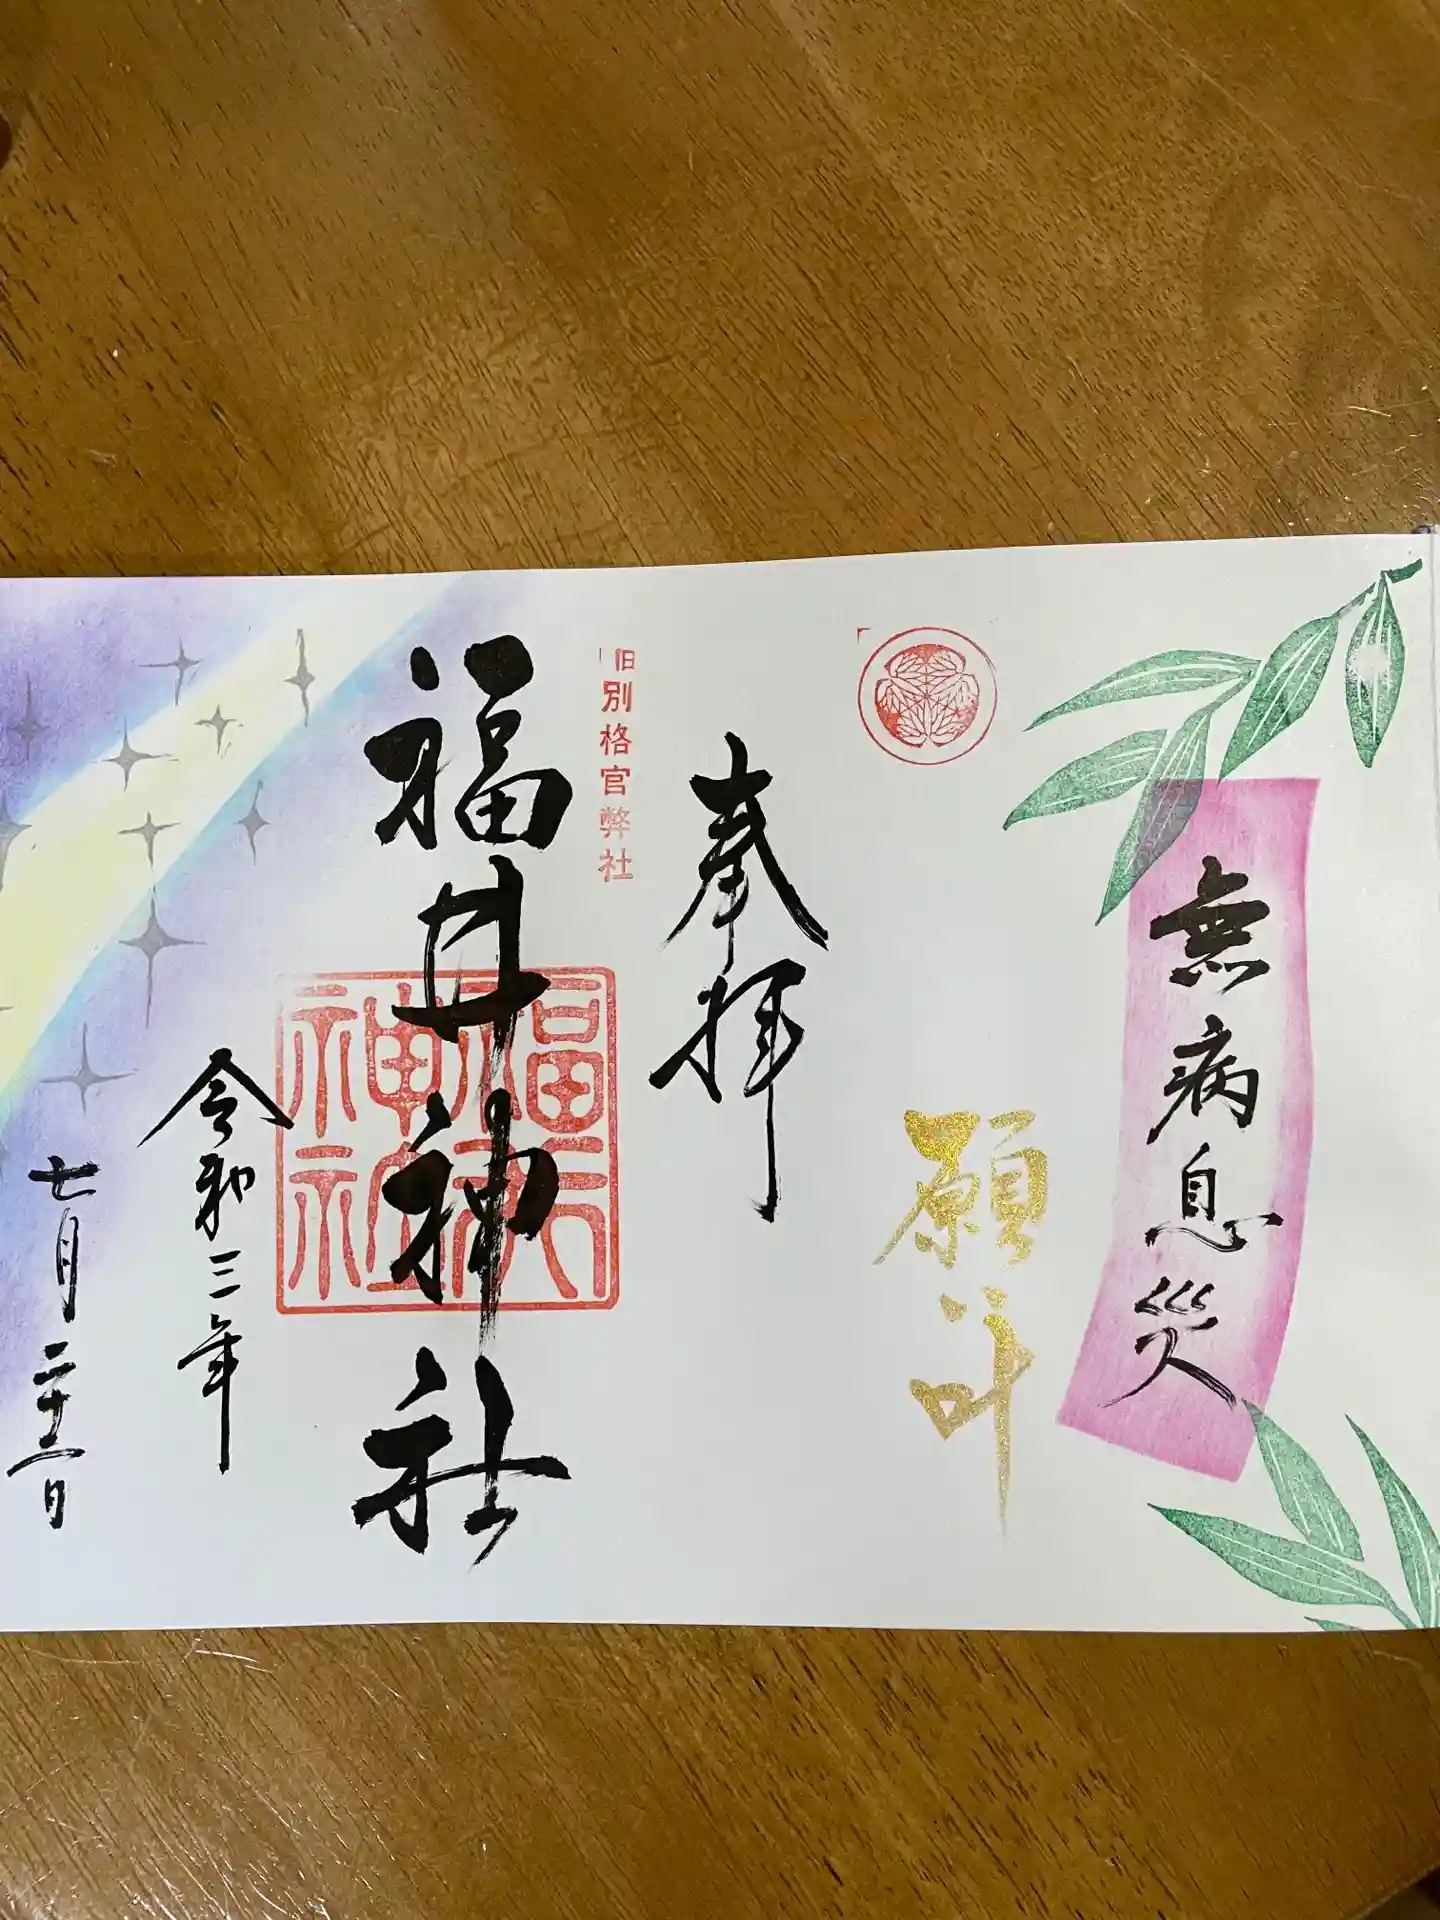 無病息災
願叶
奉拝
旧別格官弊社
福井神社
福井
神社
令和三年
七月二十二日